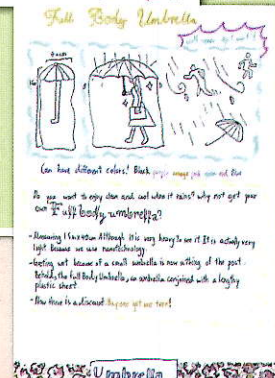 Full Body Umbrella
Can have different colors! Black purple orange pink and Blue
Do you want to enjoy clean and cool when it rains? why not get your
own Full body umbrella?
- Measuring Although it is very heavy to see it It is actually very
light because we use nanotechnology
- Getting wet because of a small umbrella is now a thing of the past.
Behold, the Full Body Umbrella, an umbrella conjoined with a lengthy
plastic sheet
- Now there is a discount Buy one get one free!
Umbrella